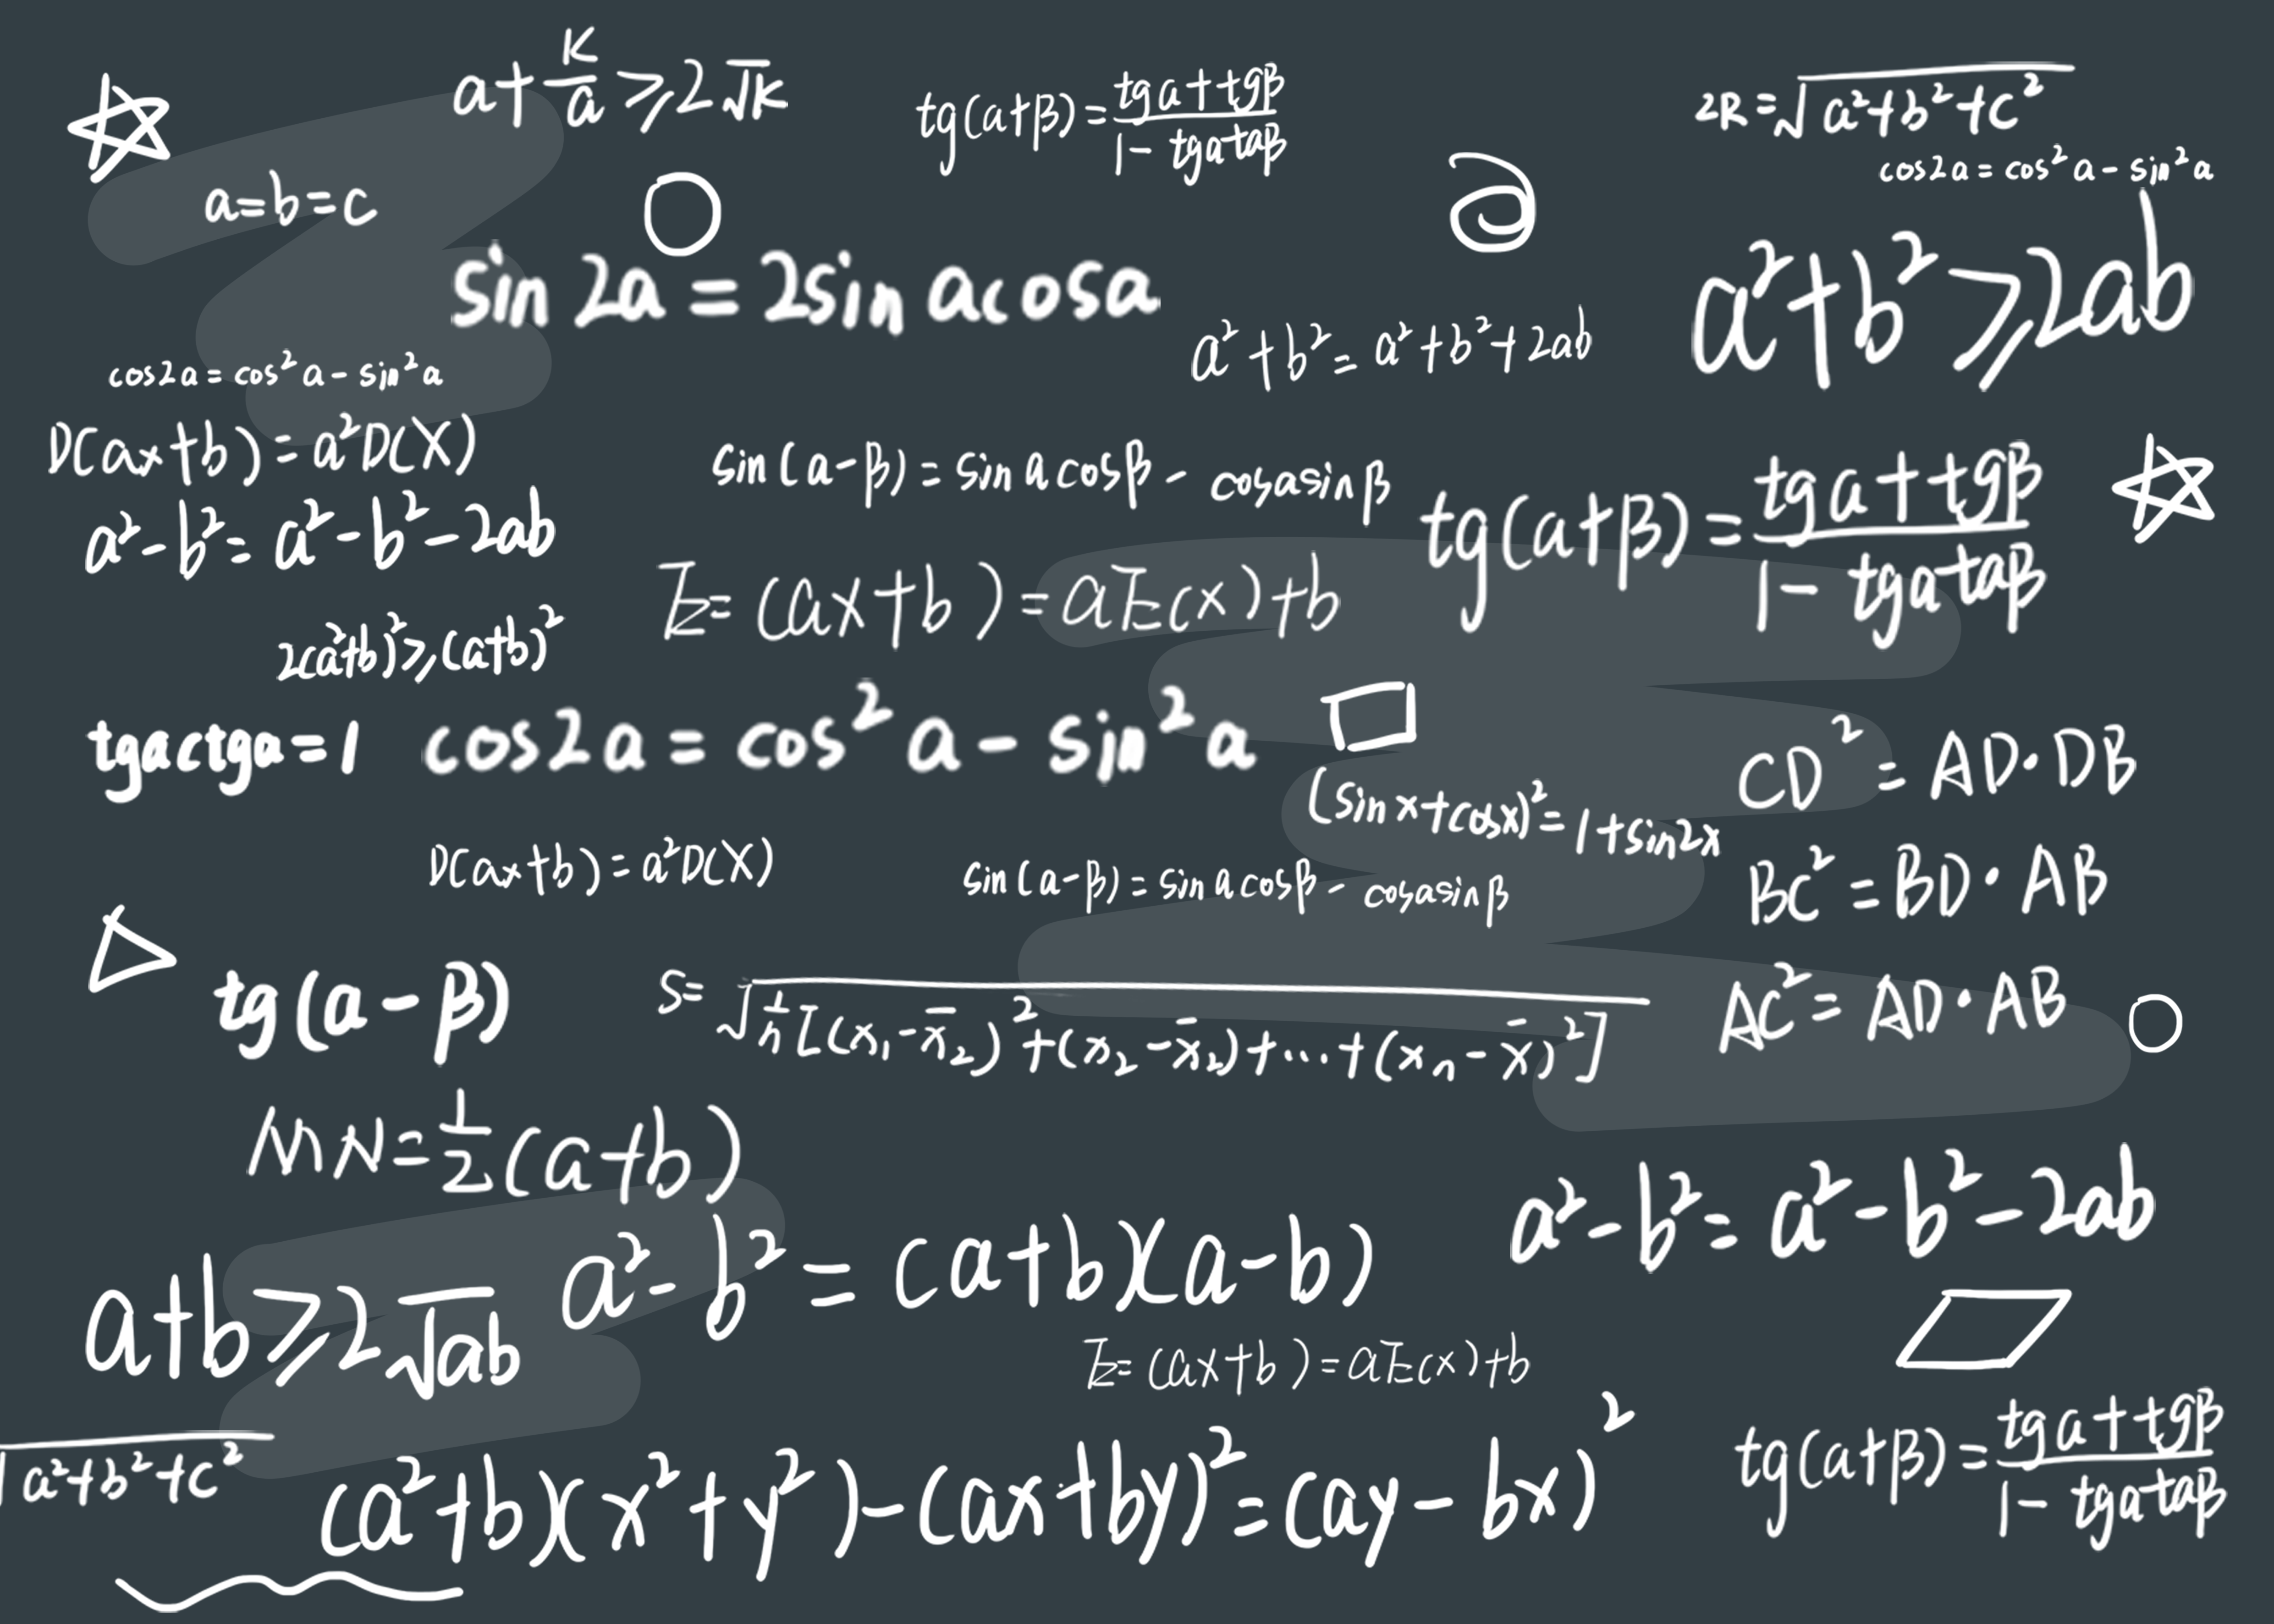 a+K/a≥2√K
tg(a+β)=tga+tgβ/1-tgataβ
2R=√a²+b²+c²
cos2a=cos²a-sin²a
a=b=c
sin2a=2sinacosa
a²+b²≥2ab
a²+b²=a²+b²+2ab
cos2a=cos²a-sin²a
D(ax+b)=a²D(X)
sin(a-β)=sinacosβ-cosasinβ
tg(a+β)=tga+tgβ/1-tgataβ
a²-b²=a²-b²-2ab
E=(ax+b)=aE(x)+b
2(a²+b)²≥(a+b)²
tgactga=1
cos2a=cos²a-sin²a
CD²=AD·DB
(sinx+cosx)²=1+sin2x
D(ax+b)=a²D(X)
sin(a-β)=sinacosβ-cosasinβ
BC²=BD·AB
tg(a-β)
S=√1/n[(x₁-x̄₂)²+(x₂-x̄₂)+...+(xₙ-x̄)²]
AC²=AD·AB
MN=1/2(a+b)
a²-b²=a²-b²-2ab
a²-b²=(a+b)(a-b)
a+b≥2√ab
E=(ax+b)=aE(x)+b
√a²+b²+c²
(a²+b)(x²+y²)-(ax+by)²=(ay-bx)²
tg(a+β)=tga+tgβ/1-tgataβ